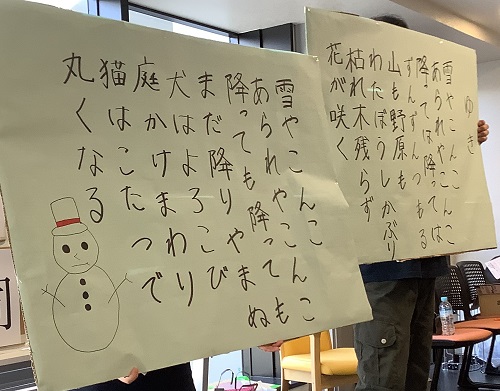 ゆき
雪やこんこ
あられやこんこ
降っては降っては
ずんずんつもる
山も野原も
わたぼうしかぶり
枯れ木残らず
花が咲く
雪やこんこ
あられやこんこ
降っても降っても
まだ降りやまぬ
犬はよろこび
庭かけまわり
猫はこたつで
丸くなる